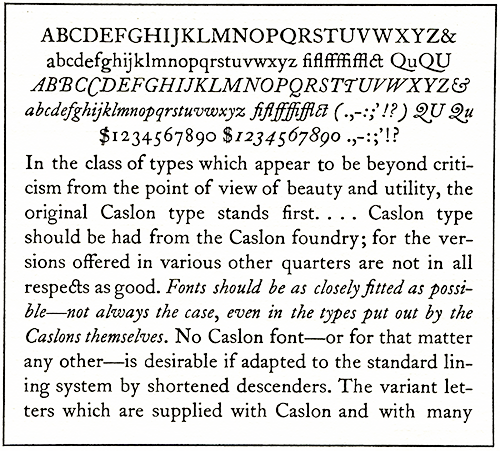 ABCDEFGHIJKLMNOPQRSTUVWXYZ&
abcdefghijklmnopqrstuvwxyz fiflffffifflct QuQU
ABBCCDEFGHIJKLMNOPQRSTTUVWXYZ&
abcdefghijklmnopqrstuvwxyz fiflffffifflct (.,-:;'!?) QU Qu
$1234567890 $1234567890 .,-:;'!?
In the class of types which appear to be beyond criti-
cism from the point of view of beauty and utility, the
original Caslon type stands first. . . . Caslon type
should be had from the Caslon foundry; for the ver-
sions offered in various other quarters are not in all
respects as good. Fonts should be as closely fitted as possi-
ble—not always the case, even in the types put out by the
Caslons themselves. No Caslon font—or for that matter
any other—is desirable if adapted to the standard lin-
ing system by shortened descenders. The variant let-
ters which are supplied with Caslon and with many